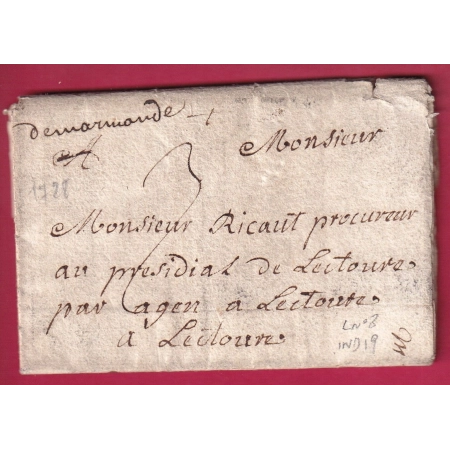 demarmande
A Monsieur
1728
3
Monsieur Ricaut procureur
au presidial de Lectoure
par agen a Lectoure
a Lectoure
L n°8
IND 19